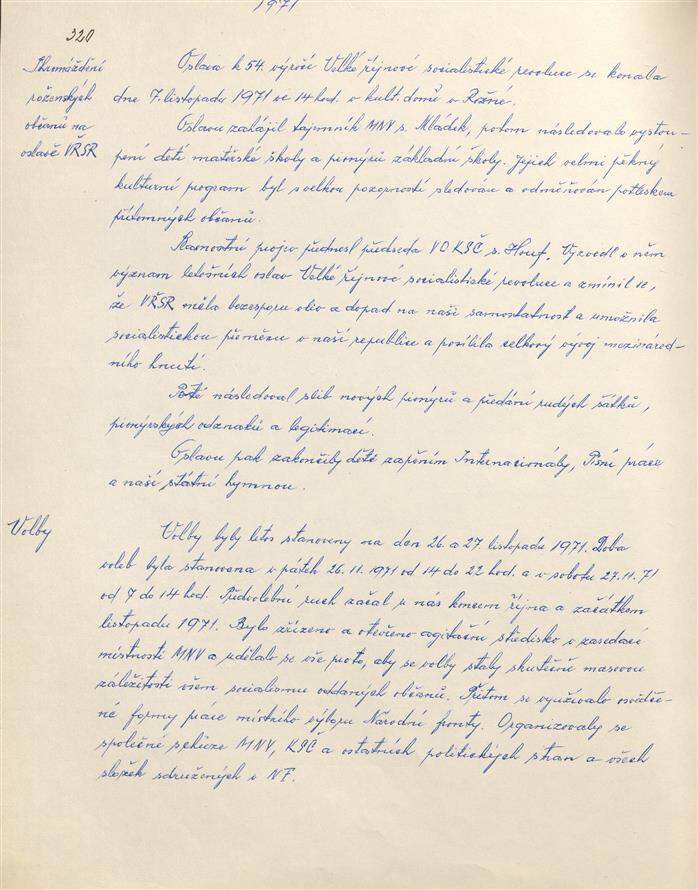 1971
320
Shromáždění
roženských
občanů na
oslavě VŘSR
Oslava k 54. výročí Velké říjnové socialistické revoluce se konala
dne 7. listopadu 1971 ve 14 hod. v kult. domě v Rožné.
Oslavu zahájil tajemník MNV s. Mládek, potom následovalo vystou-
pení dětí mateřské školy a pionýrů základní školy. Jejich velmi pěkný
kulturní program byl s velkou pozorností sledován a odměňován potleskem
přítomných občanů.
Slavnostní projev přednesl předseda VO KSČ s. Houf. Vyzvedl v něm
význam letošních oslav Velké říjnové socialistické revoluce a zmínil se,
že VŘSR měla bezesporu vliv a dopad na naši samostatnost a umožnila
socialistickou přeměnu v naší republice a posílila celkový vývoj mezinárod-
ního hnutí.
Poté následoval slib nových pionýrů a předání rudých šátků,
pionýrských odznaků a legitimací.
Oslavu pak zakončily děti zapěním Internacionály, Písní práce
a naší státní hymnou.
Volby
Volby byly letos stanoveny na den 26. a 27. listopadu 1971. Doba
voleb byla stanovena v pátek 26. 11. 1971 od 14 do 22 hod. a v sobotu 27. 11. 71
od 7 do 14 hod. Předvolební ruch začal u nás koncem října a začátkem
listopadu 1971. Bylo zřízeno a otevřeno agitační středisko v zasedací
místnosti MNV a udělalo se vše proto, aby se volby staly skutečně masovou
záležitostí všem socialismu oddaných občanů. Přitom se využívalo osvědče-
né formy práce místního výboru Národní fronty. Organizovaly se
společné schůze MNV, KSČ a ostatních politických stran a všech
složek sdružených v NF.